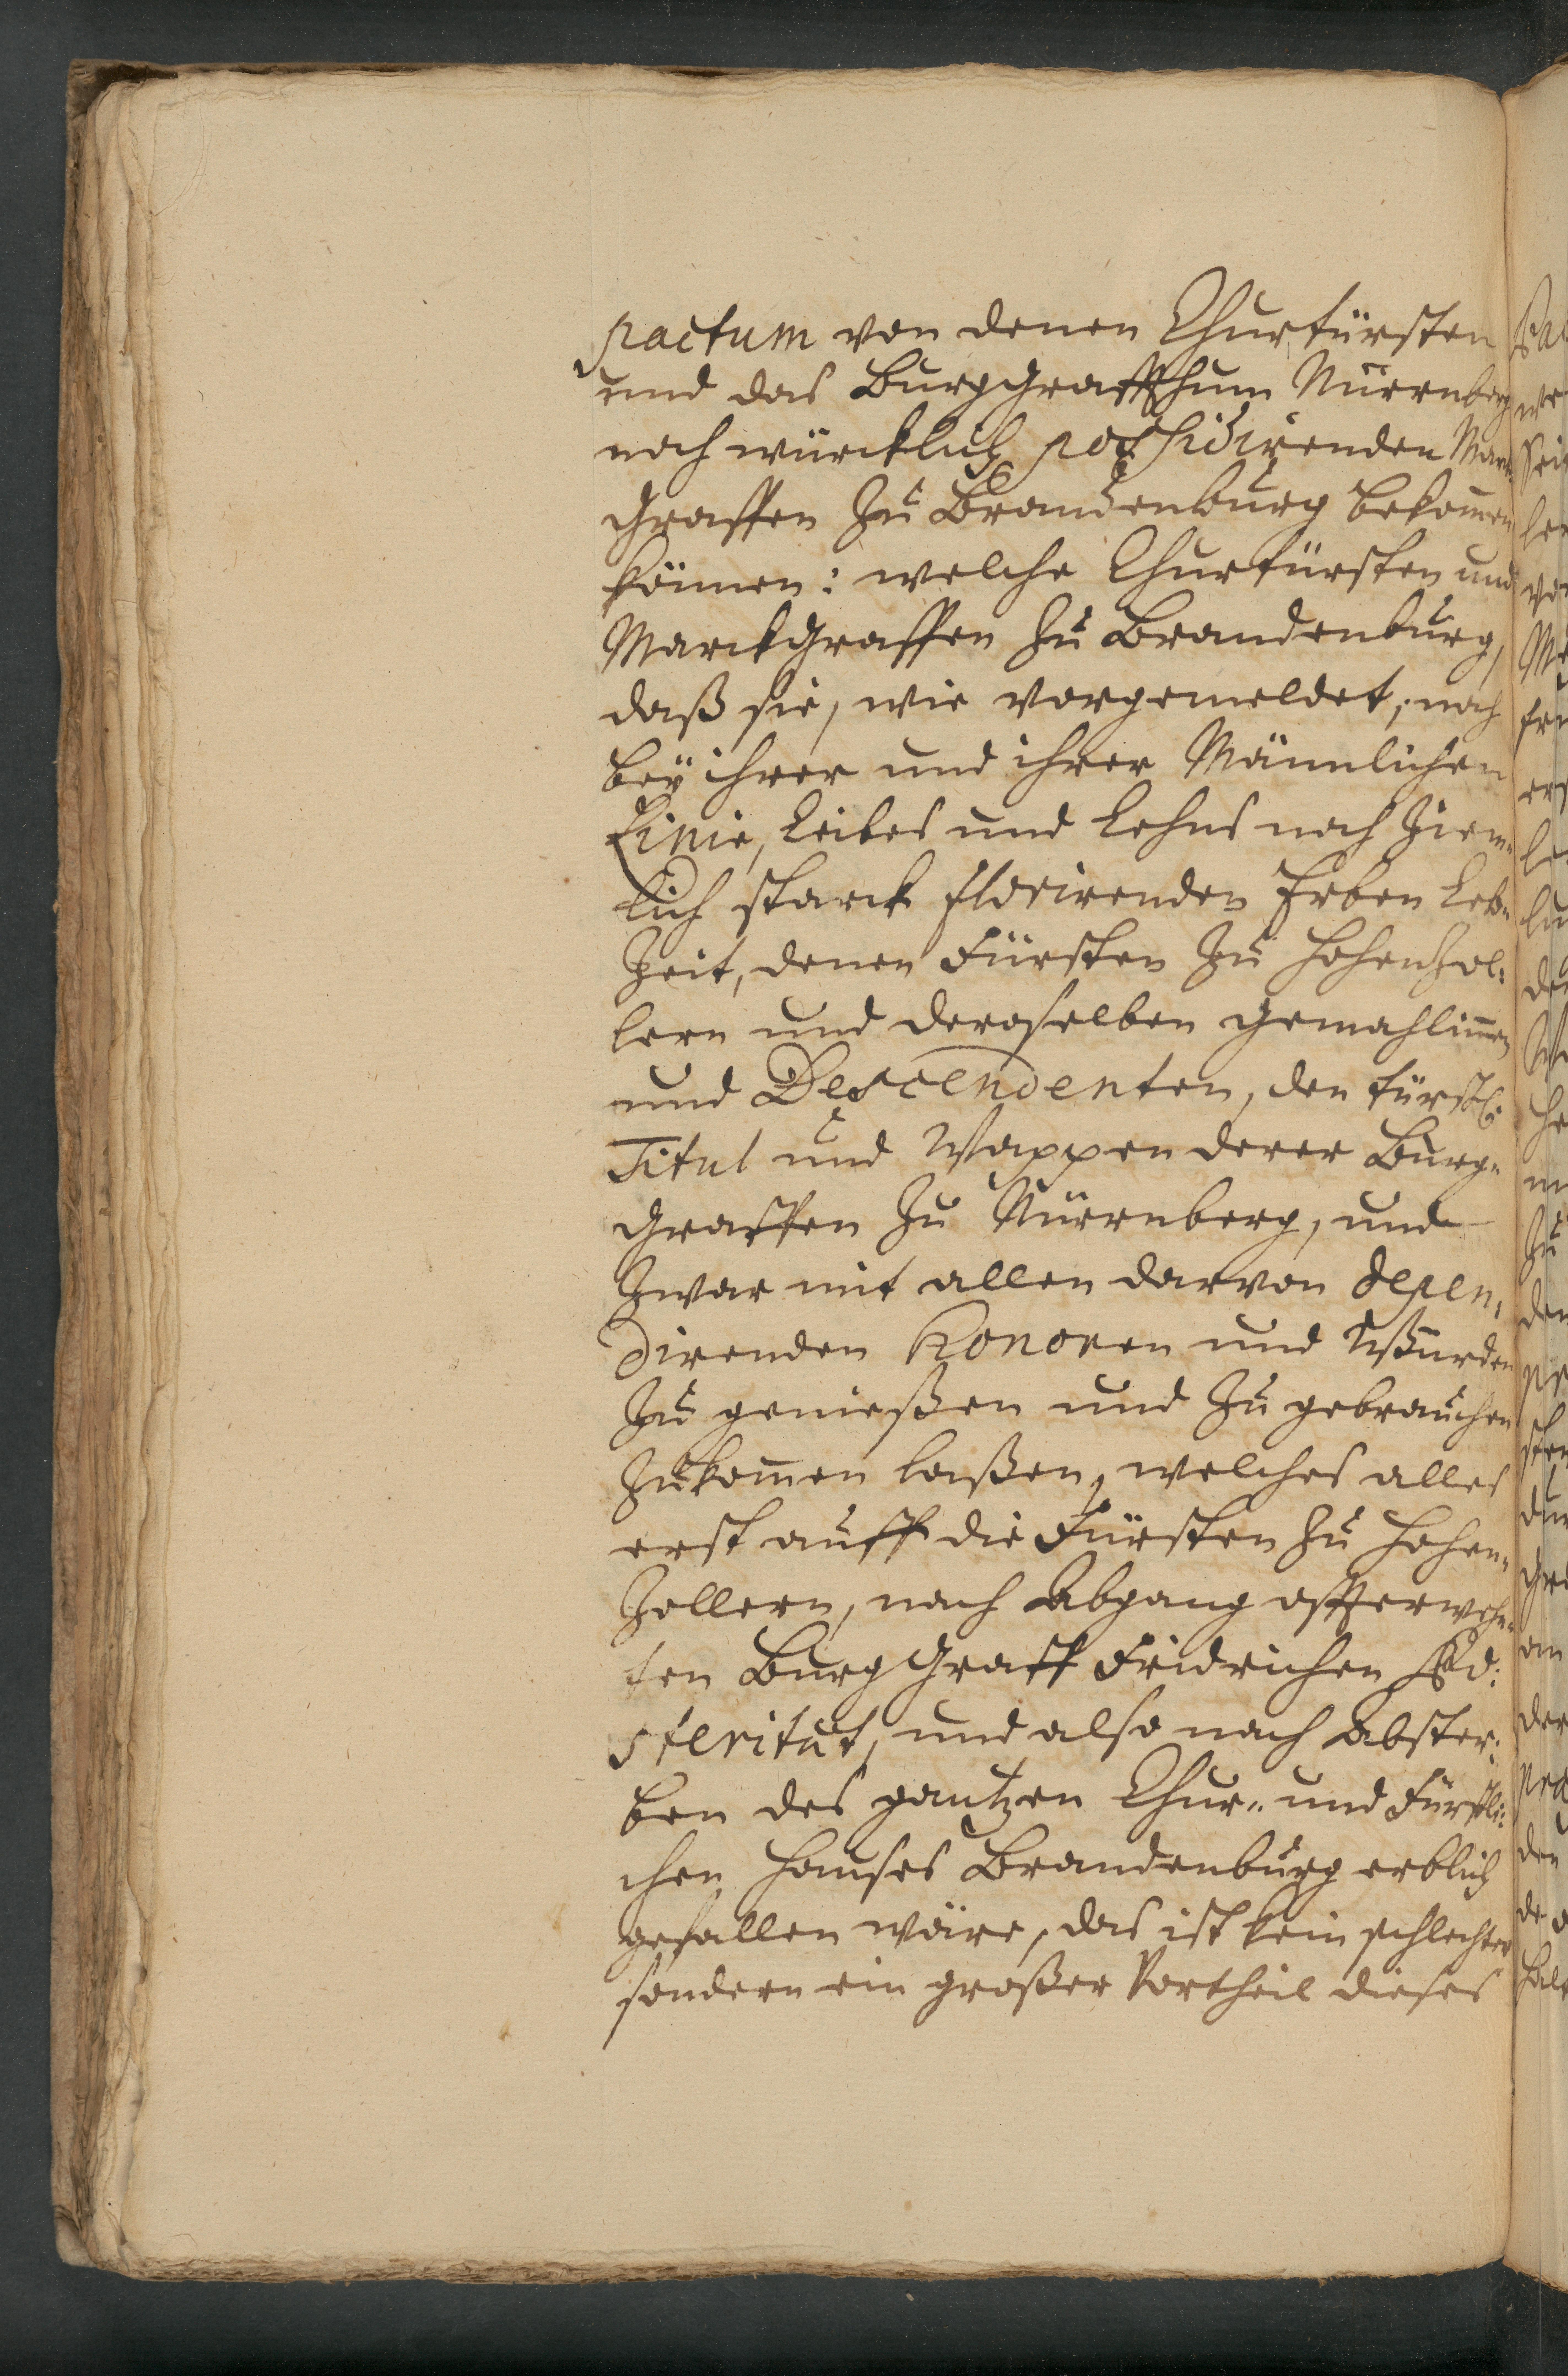 pactum von denen Churfürsten
und das Burggraffthum Nürrnberg
noch würcklich possidirenden Mar¬
Graffen zu Brandenburg bekom̄en
können: welche Churfürsten und
Marckgraffen zu Brandenburg,
daß sie, wie vorgemeldet, noch
beÿ ihrer und ihrer Männlichen
Linie, Leibes und Lehns noch ziem¬
lich starck florirenden Erben Leb¬
Zeit, denen Fürsten zu Hohenzol¬
lern und deroselben Gemahlinnen
und Descendenten, den fürstl:
Titul und Wappen derer Burg¬
Graffen zu Nürrnberg, und
zwar mit allen darvon depen¬
direnden Honoren und Würden
zu genießen und zu gebrauchen
zukom̄en laßen, welches alles
erst auff die Fürsten zu Hohen¬
zollern, nach Abgang offterwehn¬
ten Burggraff Fridrichen
sterität, und also nach Abster¬
ben des gantzen Chur- und Fürstli¬
chen Hauses Brandenburg erblich
gefallen wäre, das ist kein schlechter
sondern ein großer Vortheil dieses